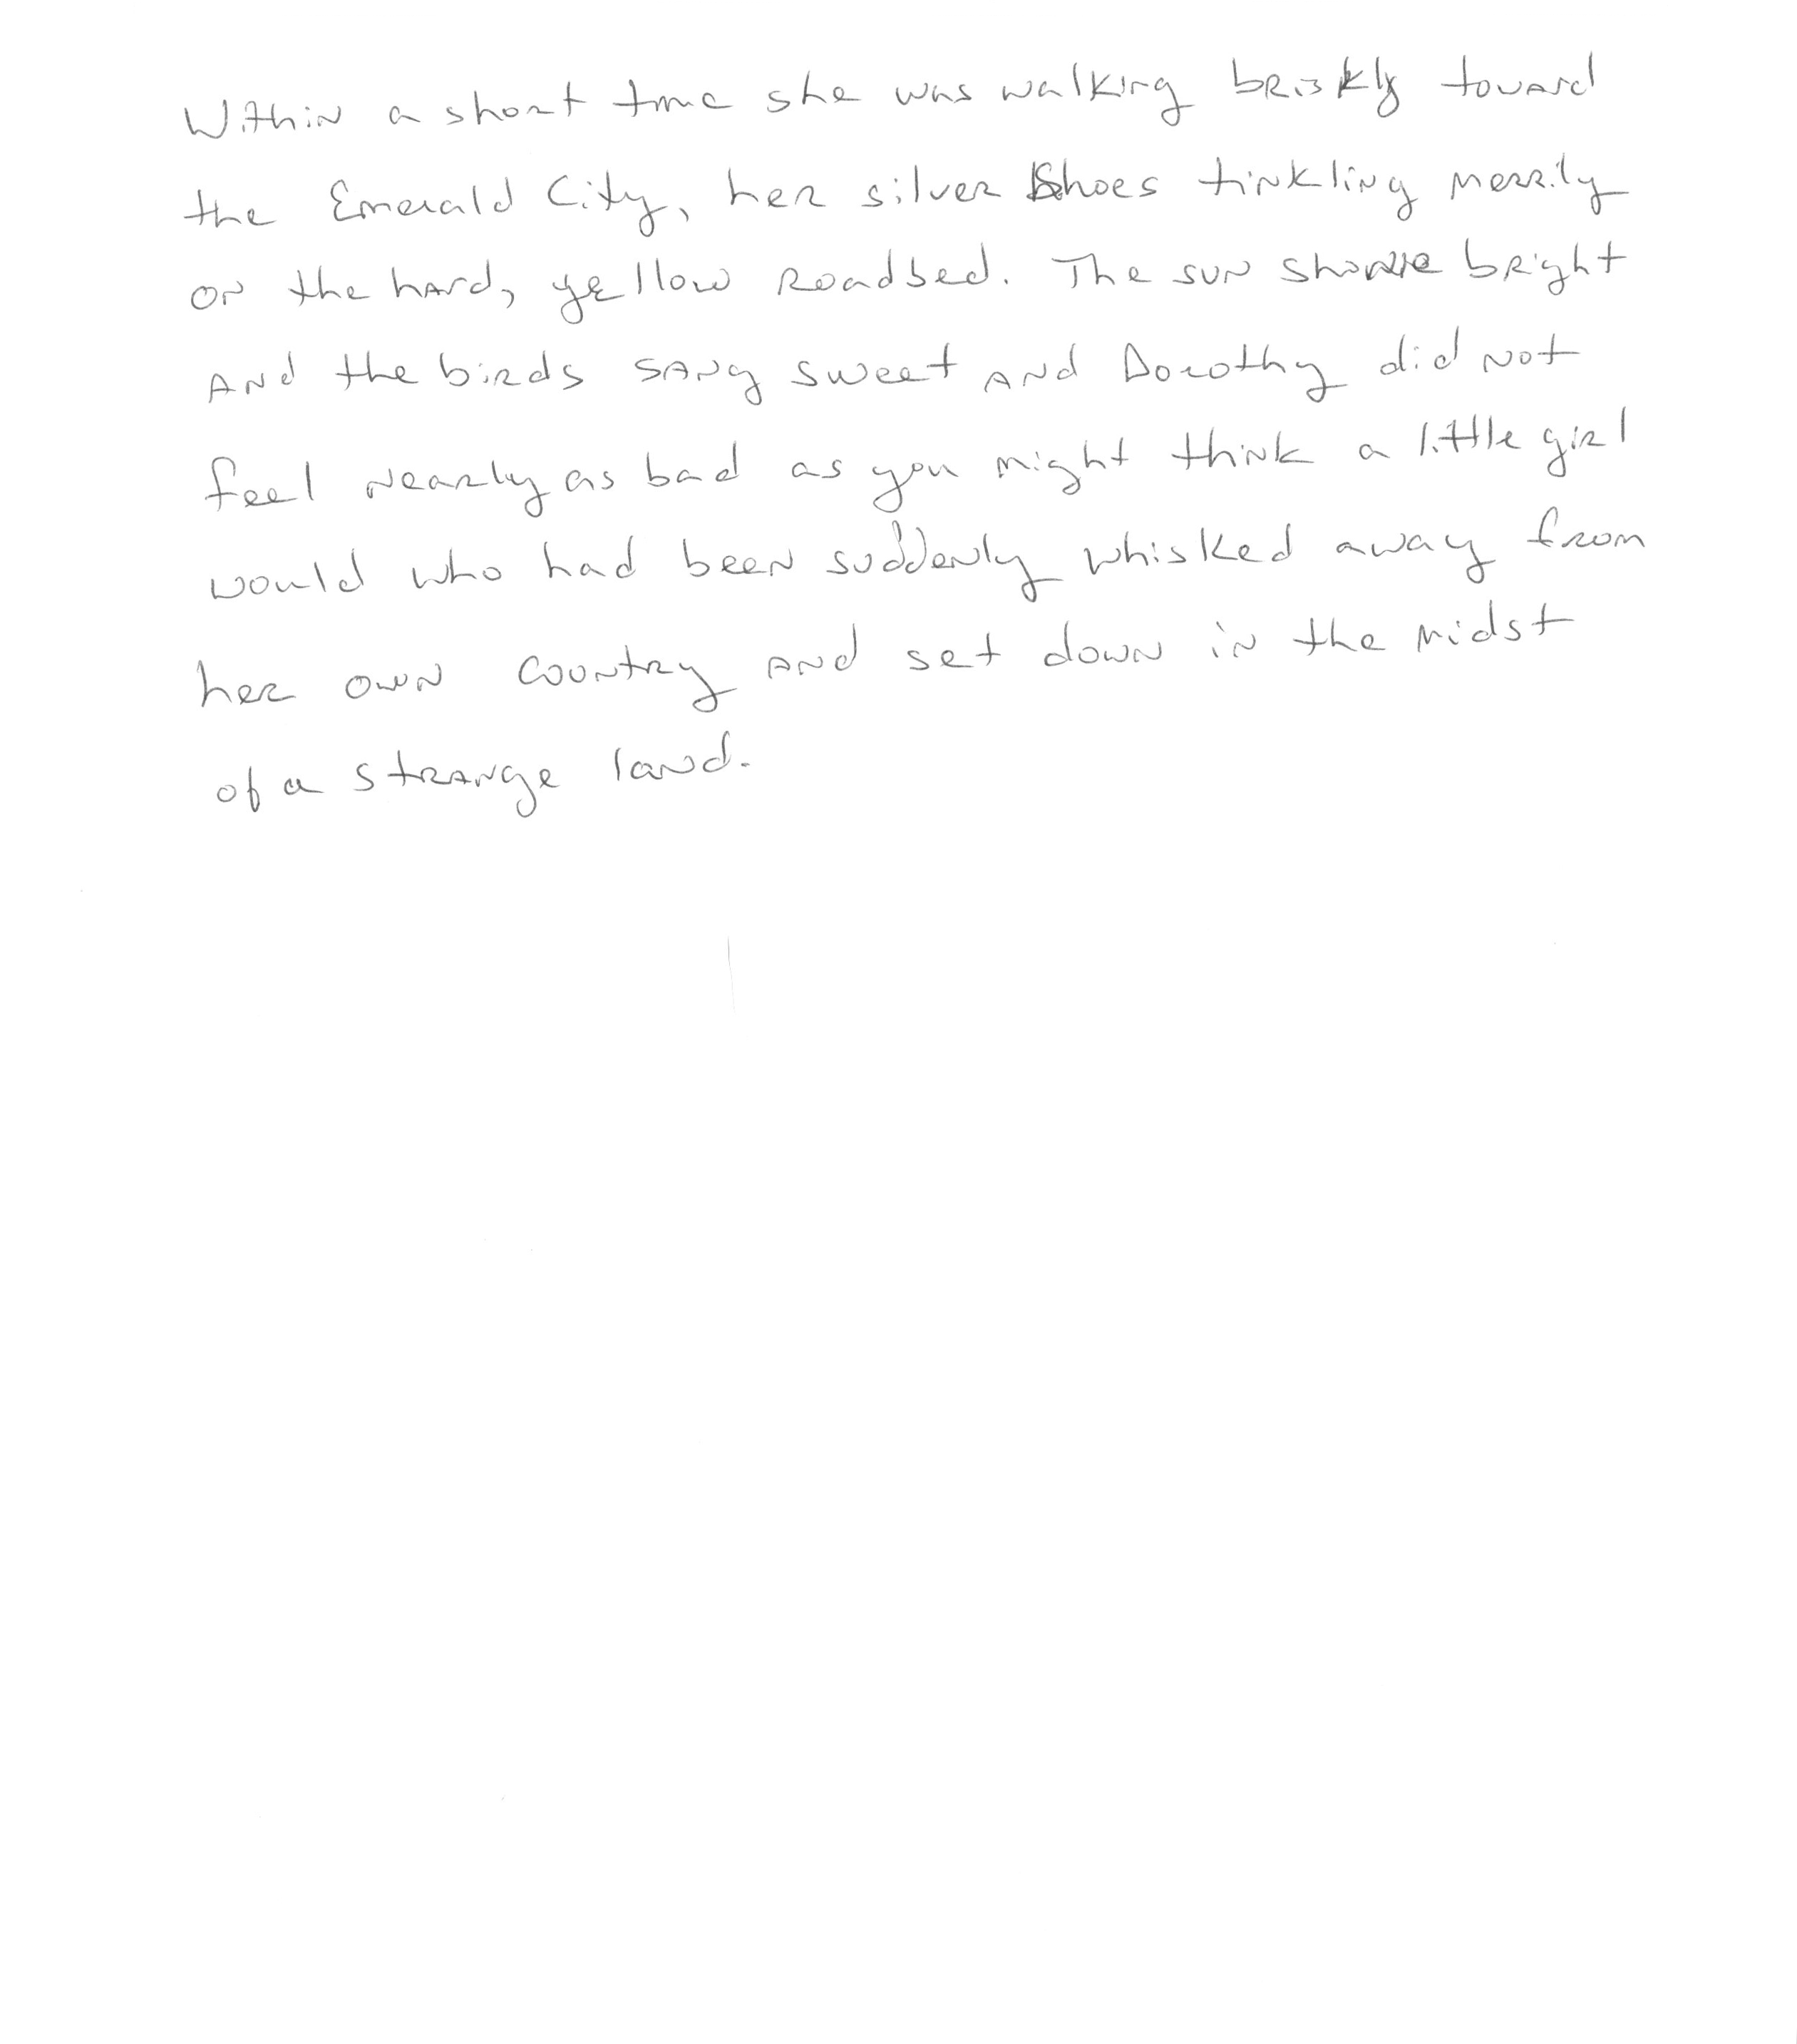 Within a short time she was walking briskly toward
the Emerald City, her silver Shoes tinkling merrily
on the hard, yellow roadbed. The sun shone bright
and the birds sang sweet and Dorothy did not
feel nearly as bad as you might think a little girl
would who had been suddenly whisked away from
her own country and set down in the midst
of a strange land.